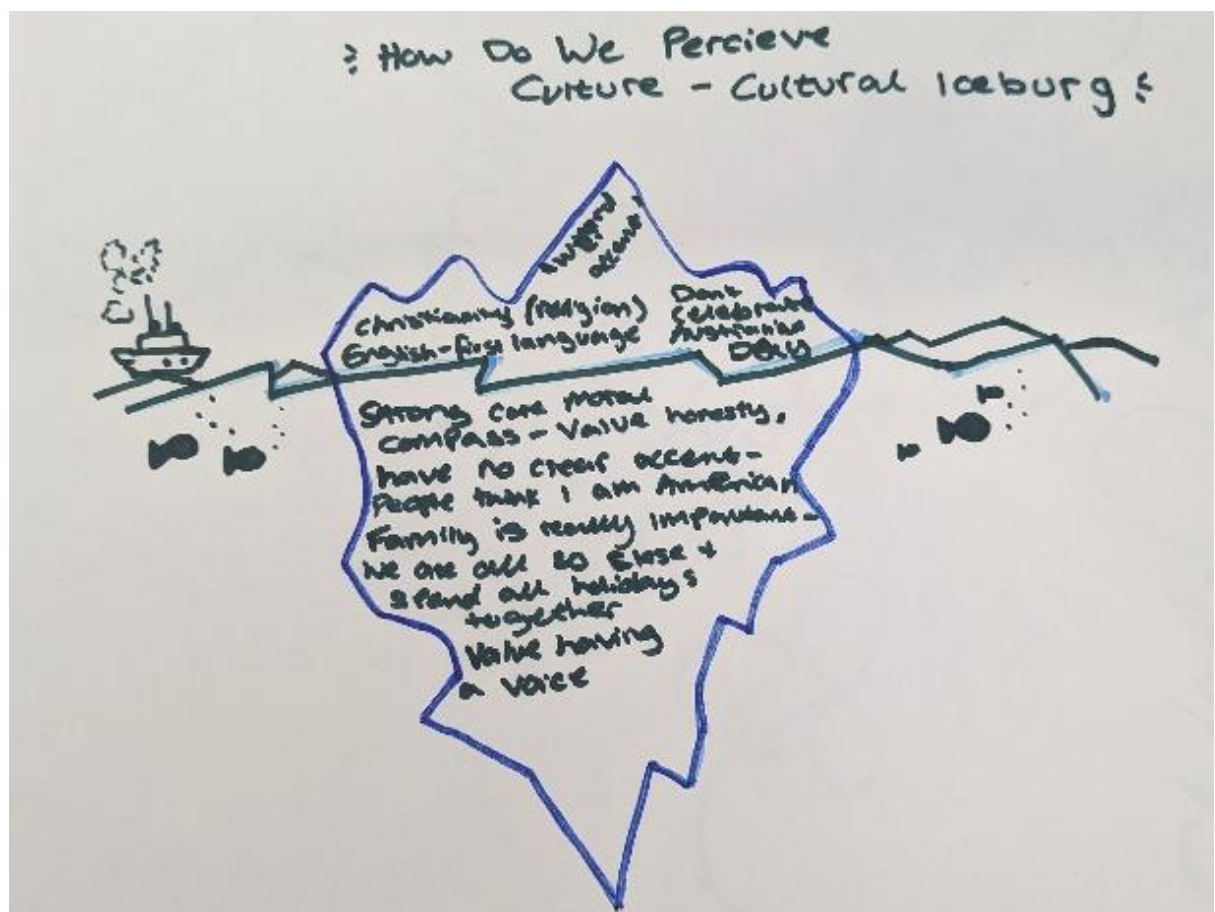 How Do We Percieve
Culture - Cultural Iceburg
accent
Christianity (religion)
English - first language
Don't
celebrate
Australian
Day
Strong core moral
compass - Value honesty.
have no clear accent -
People think I am American
Family is really important -
We are all so close +
spend all holidays
together
Value having
a voice